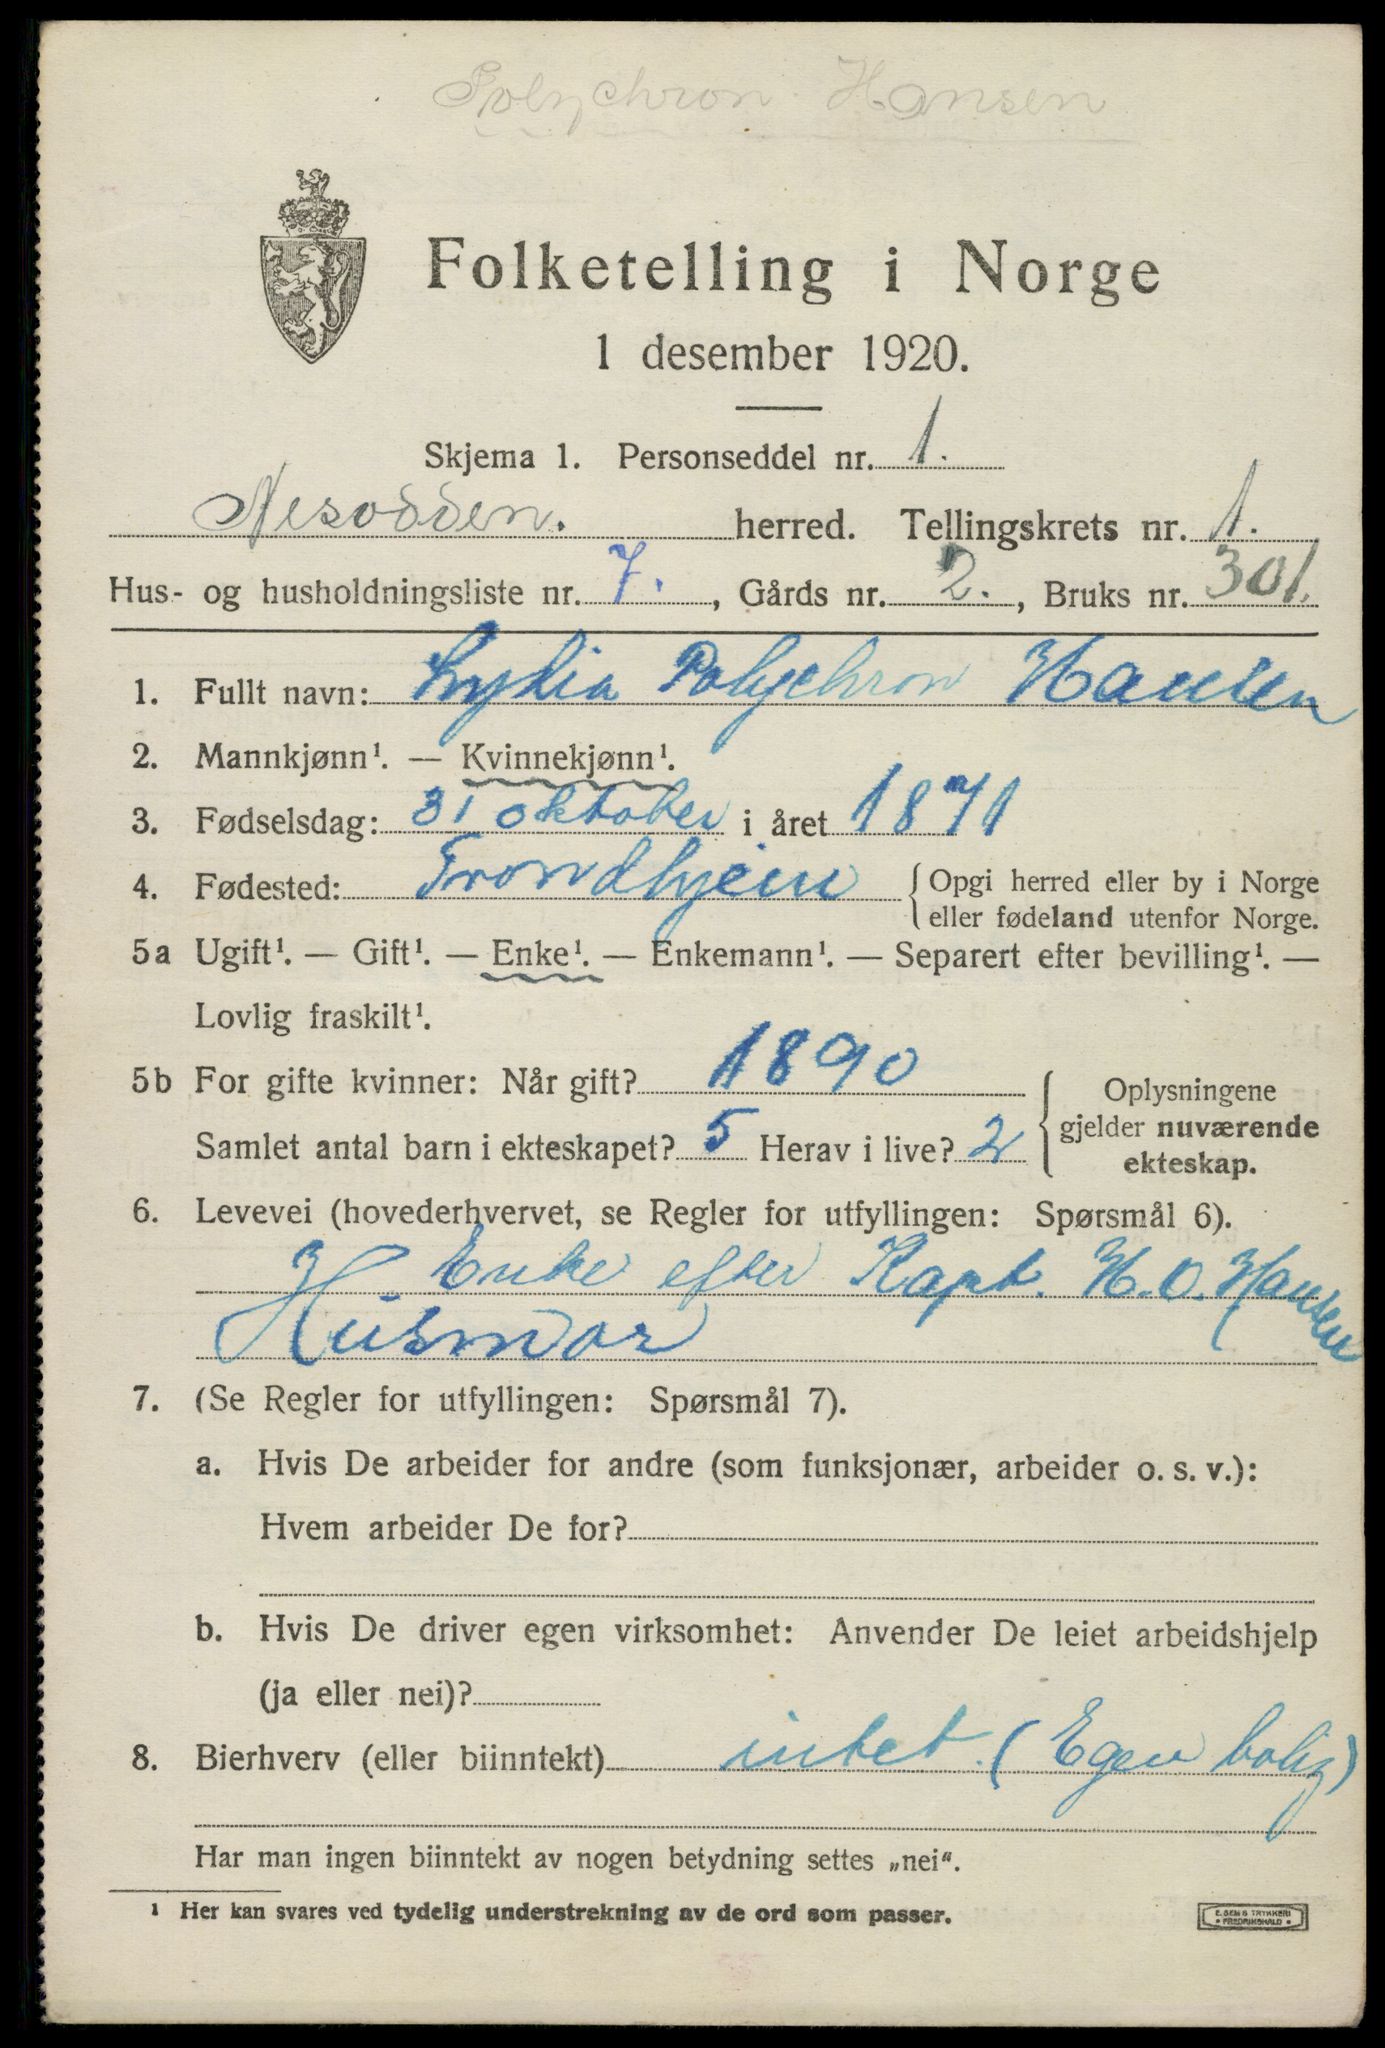 Polychron Hansen
Folketelling i Norge
1 desember 1920.
Skjema 1. Personseddel nr. 1.
Nesodden. herred. Tellingskrets nr. 1.
Hus- og husholdningsliste nr. 7., Gårds nr. 2., Bruks nr. 301.
1. Fullt navn: Lydia Polychron Hansen
2. Mannkjønn¹. — Kvinnekjønn¹.
3. Fødselsdag: 31 oktober i året 1871
4. Fødested: Trondhjem { Opgi herred eller by i Norge
eller fødeland utenfor Norge.
5a Ugift¹. — Gift¹. — Enke¹. — Enkemann¹. — Separert efter bevilling¹. —
Lovlig fraskilt¹.
5b For gifte kvinner: Når gift? 1890 { Oplysningene
gjelder nuværende
Samlet antal barn i ekteskapet? 5 Herav i live? 2
ekteskap.
6. Levevei (hovederhvervet, se Regler for utfyllingen: Spørsmål 6).
Enke efter Kapt. H. O. Hansen
Husmor
7. (Se Regler for utfyllingen: Spørsmål 7).
a. Hvis De arbeider for andre (som funksjonær, arbeider o. s. v.):
Hvem arbeider De for?
b. Hvis De driver egen virksomhet: Anvender De leiet arbeidshjelp
(ja eller nei)?
8. Bierhverv (eller biinntekt) intet (Egen bolig)
Har man ingen biinntekt av nogen betydning settes „nei“.
¹ Her kan svares ved tydelig understrekning av de ord som passer.
E. SEM'S TRYKKERI
• FREDRIKSHALD •